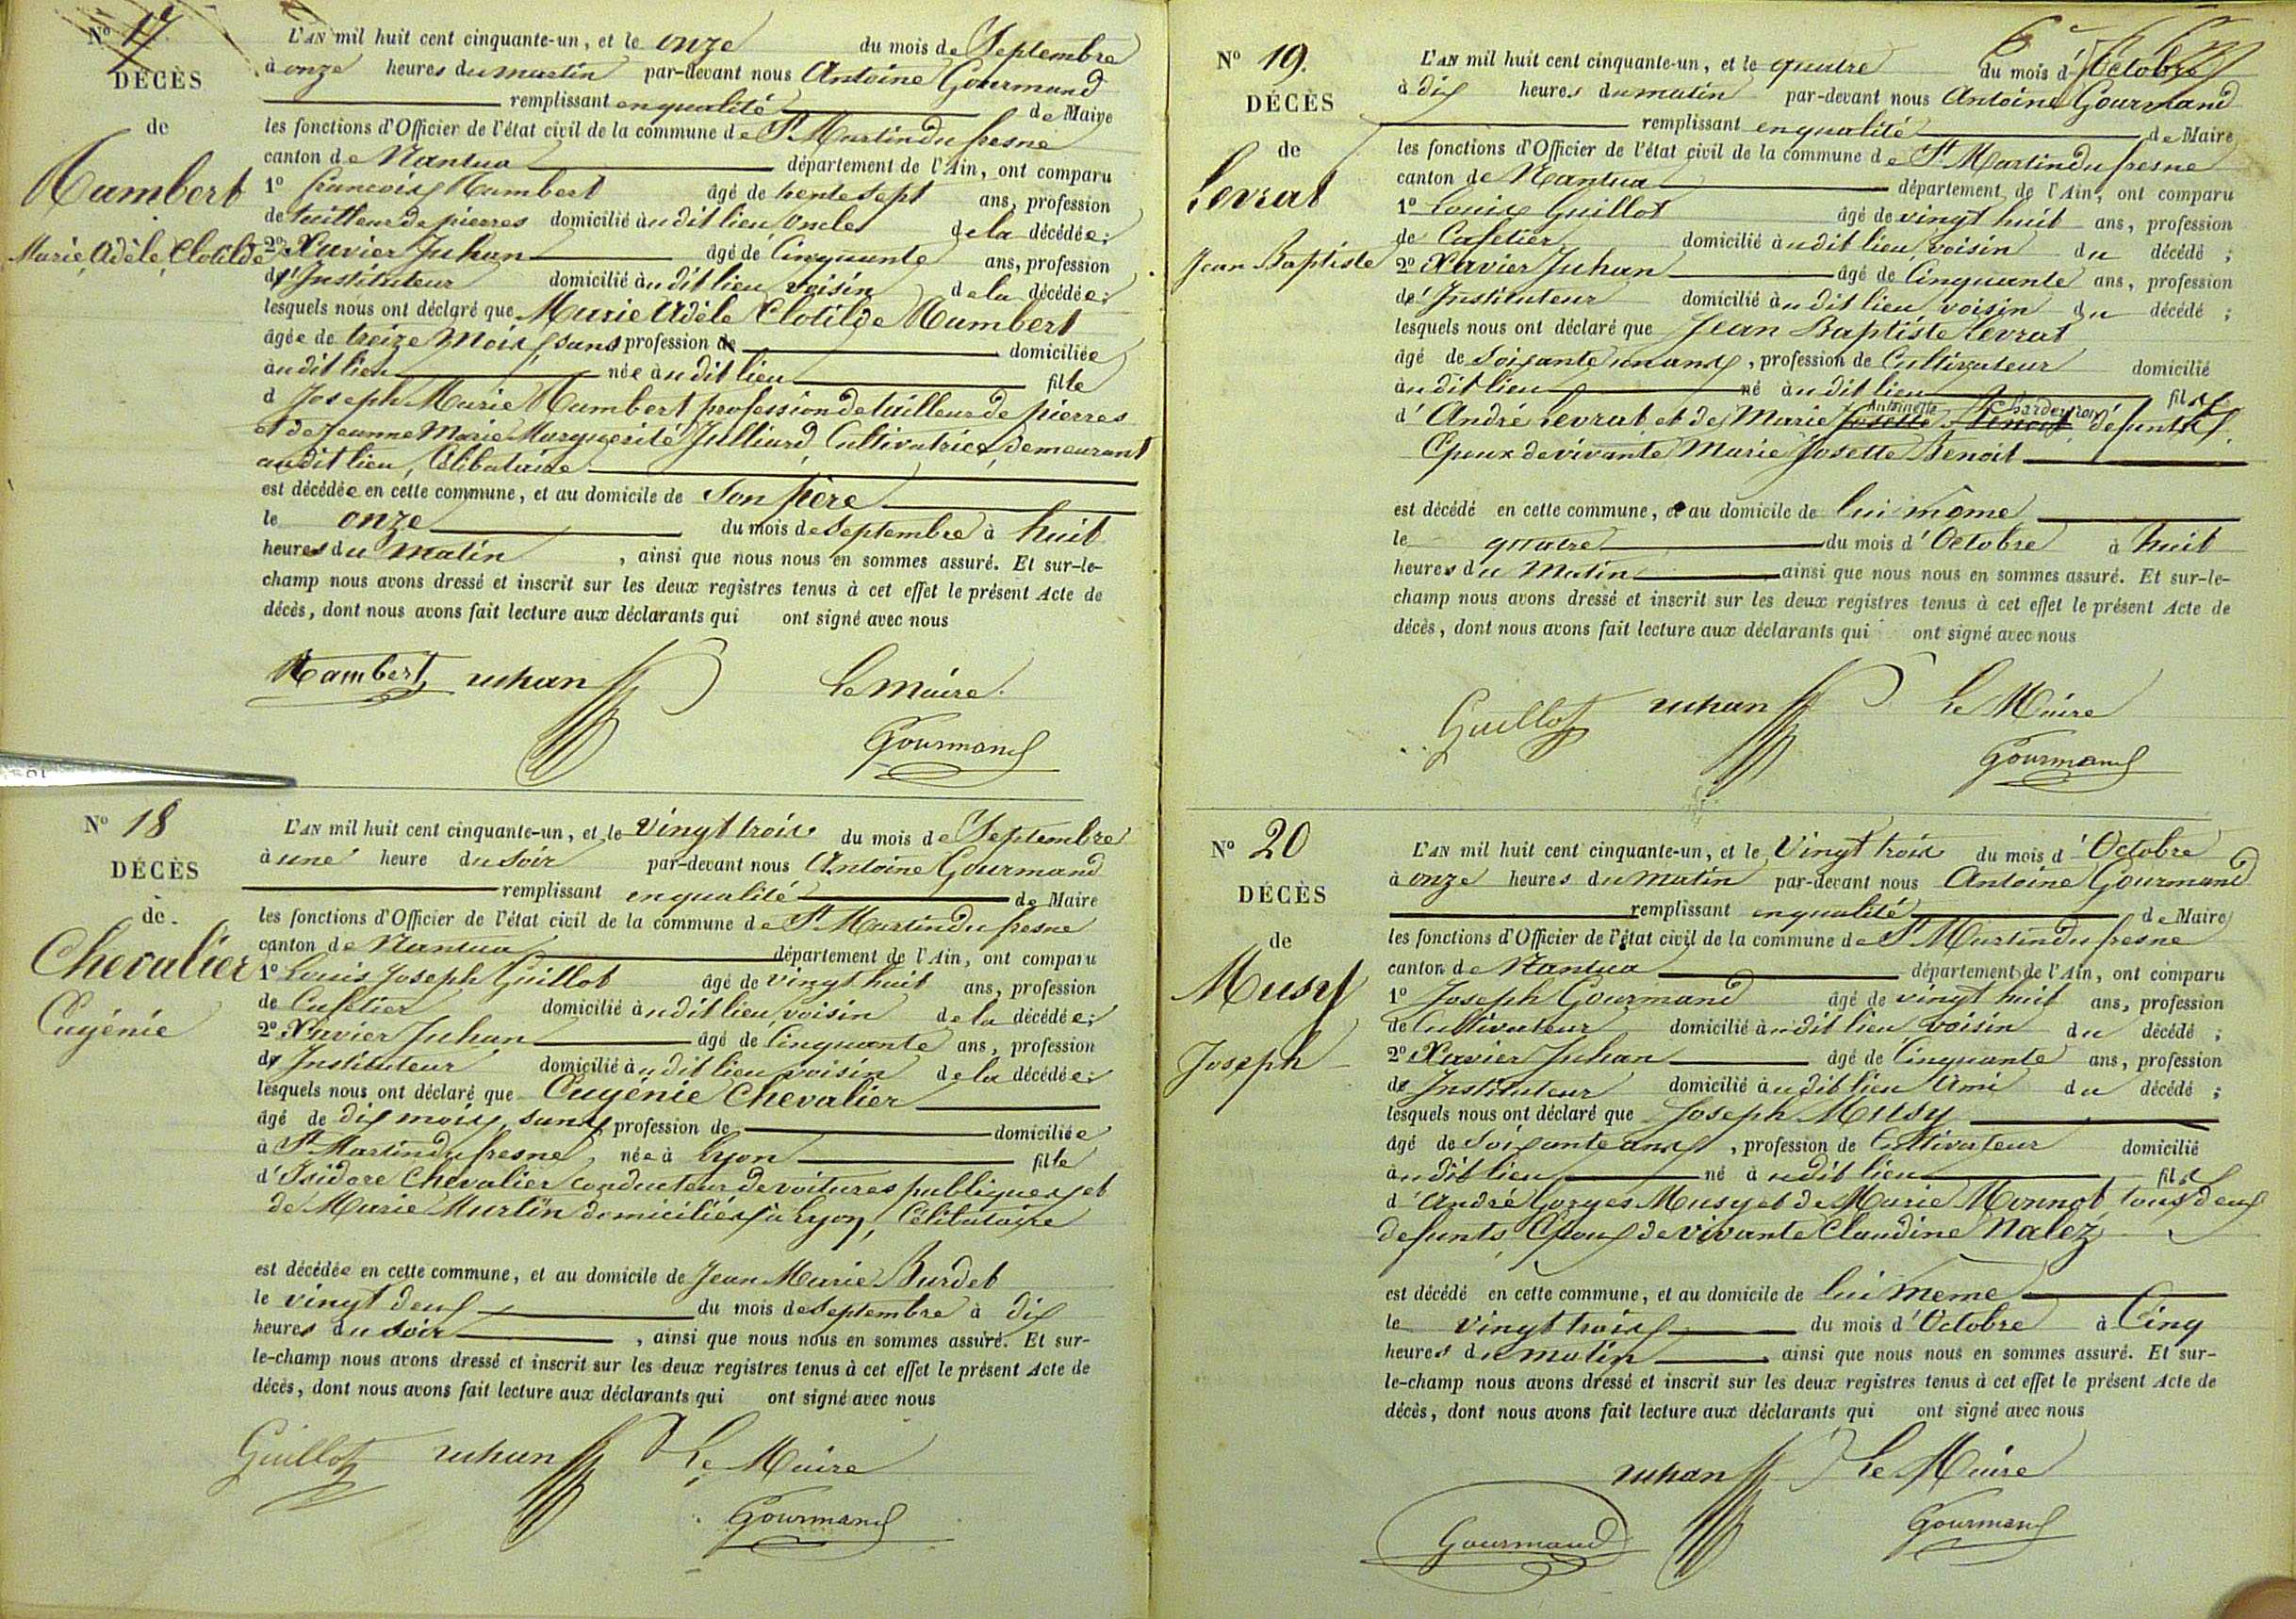 N° 17
DÉCÈS
de
Humbert
Marie, Adèle, Clotilde
L'AN mil huit cent cinquante-un, et le onze du mois de Septembre
à onze heures du matin par-devant nous Antoine Gourmand
remplissant en qualité de Maire
les fonctions d'Officier de l'état civil de la commune de St Martin du fresne
canton de Nantua département de l'Ain, ont comparu
1° francois Humbert âgé de trente sept ans, profession
de tailleur de pierres domicilié audit lieu oncle de la décédée;
2° Xavier Juhan âgé de Cinquante ans, profession
d'Instituteur domicilié audit lieu voisin de la décédée;
lesquels nous ont déclaré que Marie Adèle Clotilde Humbert
âgée de treize mois, sans profession de domiciliée
audit lieu née audit lieu fille
d Joseph Marie Humbert profession de tailleur de pierres
et de Jeanne Marie Marguerite Julliard, Cultivatrice, demeurant
audit lieu, Célibataire
est décédée en cette commune, et au domicile de Son père
le onze du mois de Septembre à huit
heures du matin, ainsi que nous nous en sommes assuré. Et sur-le-
champ nous avons dressé et inscrit sur les deux registres tenus à cet effet le présent Acte de
décès, dont nous avons fait lecture aux déclarants qui ont signé avec nous
Humbert Juhan Le Maire
Gourmand
N° 18
DÉCÈS
de
Chevalier
Eugénie
L'AN mil huit cent cinquante-un, et le Vingt trois du mois de Septembre
à une heure du soir par-devant nous Antoine Gourmand
remplissant en qualité de Maire
les fonctions d'Officier de l'état civil de la commune de St Martin du fresne
canton de Nantua département de l'Ain, ont comparu
1° Louis Joseph Guillot âgé de vingt huit ans, profession
de Cafetier domicilié audit lieu voisin de la décédée;
2° Xavier Juhan âgé de Cinquante ans, profession
d'Instituteur domicilié audit lieu voisin de la décédée;
lesquels nous ont déclaré que Eugénie Chevalier
âgé de dix mois, sans profession de domiciliée
à St Martin du fresne, née à Lyon fille
d'Isidore Chevalier conducteur de voitures publiques et
de Marie Martin domiciliés à Lyon, Célibataire
est décédée en cette commune, et au domicile de Jean Marie Burdet
le vingt deux du mois de Septembre à dix
heures du soir, ainsi que nous nous en sommes assuré. Et sur-
le-champ nous avons dressé et inscrit sur les deux registres tenus à cet effet le présent Acte de
décès, dont nous avons fait lecture aux déclarants qui ont signé avec nous
Guillot Juhan Le Maire
Gourmand
N° 19.
DÉCÈS
de
Levrat
Jean Baptiste
L'AN mil huit cent cinquante-un, et le quatre du mois d'Octobre
à dix heures du matin par-devant nous Antoine Gourmand
remplissant en qualité de Maire
les fonctions d'Officier de l'état civil de la commune de St Martin du fresne
canton de Nantua département de l'Ain, ont comparu
1° Louis Guillot âgé de vingt huit ans, profession
de Cafetier domicilié audit lieu, voisin du décédé;
2° Xavier Juhan âgé de Cinquante ans, profession
d'Instituteur domicilié audit lieu voisin du décédé;
lesquels nous ont déclaré que Jean Baptiste Levrat
âgé de Soixante un ans, profession de Cultivateur domicilié
audit lieu né audit lieu fils
Antoinette Chardeyron
d'André Levrat et de Marie Josette Benoit défunts
Epoux de vivante Marie Josette Benoit
est décédé en cette commune, et au domicile de lui même
le quatre du mois d'Octobre à huit
heures du Matin ainsi que nous nous en sommes assuré. Et sur-le-
champ nous avons dressé et inscrit sur les deux registres tenus à cet effet le présent Acte de
décès, dont nous avons fait lecture aux déclarants qui ont signé avec nous
Guillot Juhan Le Maire
Gourmand
N° 20
DÉCÈS
de
Musy
Joseph
L'AN mil huit cent cinquante-un, et le Vingt trois du mois d'Octobre
à onze heures du matin par-devant nous Antoine Gourmand
remplissant en qualité de Maire
les fonctions d'Officier de l'état civil de la commune de St Martin du fresne
canton de Nantua département de l'Ain, ont comparu
1° Joseph Gourmand âgé de vingt huit ans, profession
de Cultivateur domicilié audit lieu voisin du décédé;
2° Xavier Juhan âgé de Cinquante ans, profession
de Instituteur domicilié audit lieu Ami du décédé;
lesquels nous ont déclaré que Joseph Musy
âgé de Soixante ans, profession de Cultivateur domicilié
audit lieu né audit lieu fils
d'André Gorges Musy et de Marie Monnot, tous deux
defunts, Epoux de vivante Claudine Nalez
est décédé en cette commune, et au domicile de lui meme
le vingt trois du mois d'Octobre à Cinq
heures du matin ainsi que nous nous en sommes assuré. Et sur-
le-champ nous avons dressé et inscrit sur les deux registres tenus à cet effet le présent Acte de
décès, dont nous avons fait lecture aux déclarants qui ont signé avec nous
Juhan Le Maire
Gourmand Gourmand